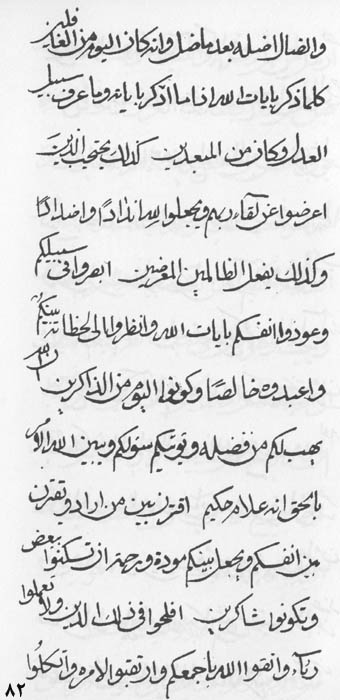 والضال اضله بعد ما ضل وانه كان اليوم من الغافلين
كلما ذكر بايات الله اذا ما اذكر باياته وما عرف سبيل
العدل وكان من المبعدين كذلك يحتجب الذين
اعرضوا عن لقاء ربهم ويجعلوا لله اندادا واضدادا
وكذلك يفعل الظالمين المعرضين ابصروا في سبيلكم
وعودوا انفسكم بايات الله وانظروا الى لحظات بينكم
واعبدوه خالصا وكونوا اليوم من الذاكرين
يهب لكم من فضله ويوتيكم سولكم ويبين الله الامر
بالحق انه علام حكيم اقترن بين من اراد ويقترن
بين انفسكم ويجعل بينكم مودة ورحمة ان تسكنوا بعض
وتكونوا شاكرين افلحوا في ذلك الدين ولا تعملوا
رياء واتقوا الله باجمعكم وارتقبوا الامره واتكلوا
٨٢